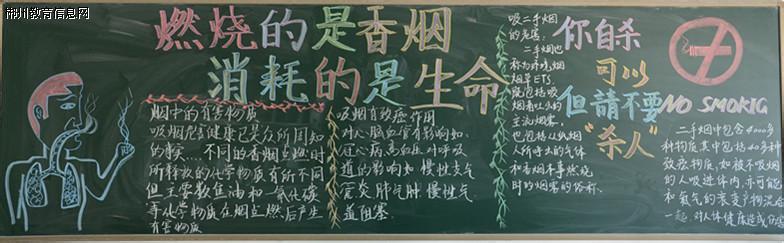 郴州教育信息网
燃烧的是香烟
消耗的是生命
烟中的有害物质
吸烟危害健康已是众所周知
的事实...不同的香烟点燃时
所释放的化学物质有所不同
但主要数焦油和一氧化碳
等化学物质在烟点燃后产生
有害物质
吸烟有致癌作用
对心脑血管有影响如
冠心病高血压对呼吸
道的影响如慢性支气
管炎肺气肿慢性气
道阻塞
吸二手烟
的危害:
二手烟也
称为环境烟
烟草ETS
既包括吸
烟者吐出的
主流烟雾
也包括从纸烟
人所呼出的气体
和香烟本尊燃烧
时的烟雾的俗称
你自杀
可以
但請不要
"杀人"
NO SMOKIG
二手烟中包含4000多
种物质其中包括40多种
致癌物质如被不吸烟
的人吸进体内亦可能
和氡气的衰变产物混合
一起对人体健康造成